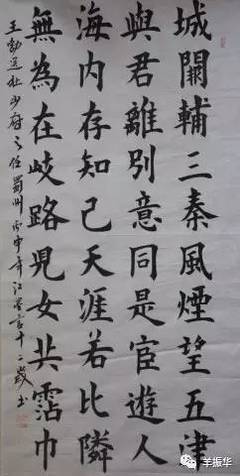 城闕輔三秦風煙望五津
與君離別意同是宦遊人
海内存知己天涯若比隣
無為在岐路兒女共霑巾
王勃送杜少府之任蜀州丙申年江言十二歲书
羊振华